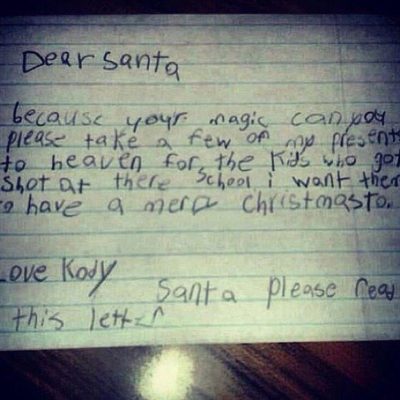 Dear Santa
because your magic can you
please take a few of my presents
to heaven for the kids who got
shot at there school i want them
to have a merry christmas to.
Love Kody
Santa please read
this letter